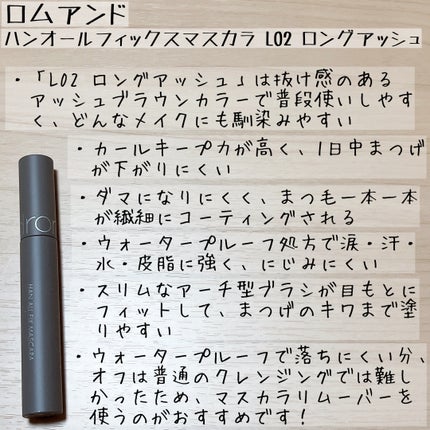 ロムアンド
ハンオールフィックスマスカラ L02 ロングアッシュ
・「L02 ロングアッシュ」は抜け感のある
アッシュブラウンカラーで普段使いしやす
く、どんなメイクにも馴染みやすい
・カールキープ力が高く、1日中まつげ
が下がりにくい
・ダマになりにくく、まつ毛一本一本
が繊細にコーティングされる
・ウォータープルーフ処方で涙・汗・
水・皮脂に強く、にじみにくい
・スリムなアーチ型ブラシが目もとに
フィットして、まつげのキワまで塗
りやすい
・ウォータープルーフで落ちにくい分、
オフは普通のクレンジングでは難し
かったため、マスカラリムーバーを
使うのがおすすめです！
HAN ALL FIX MASCARA